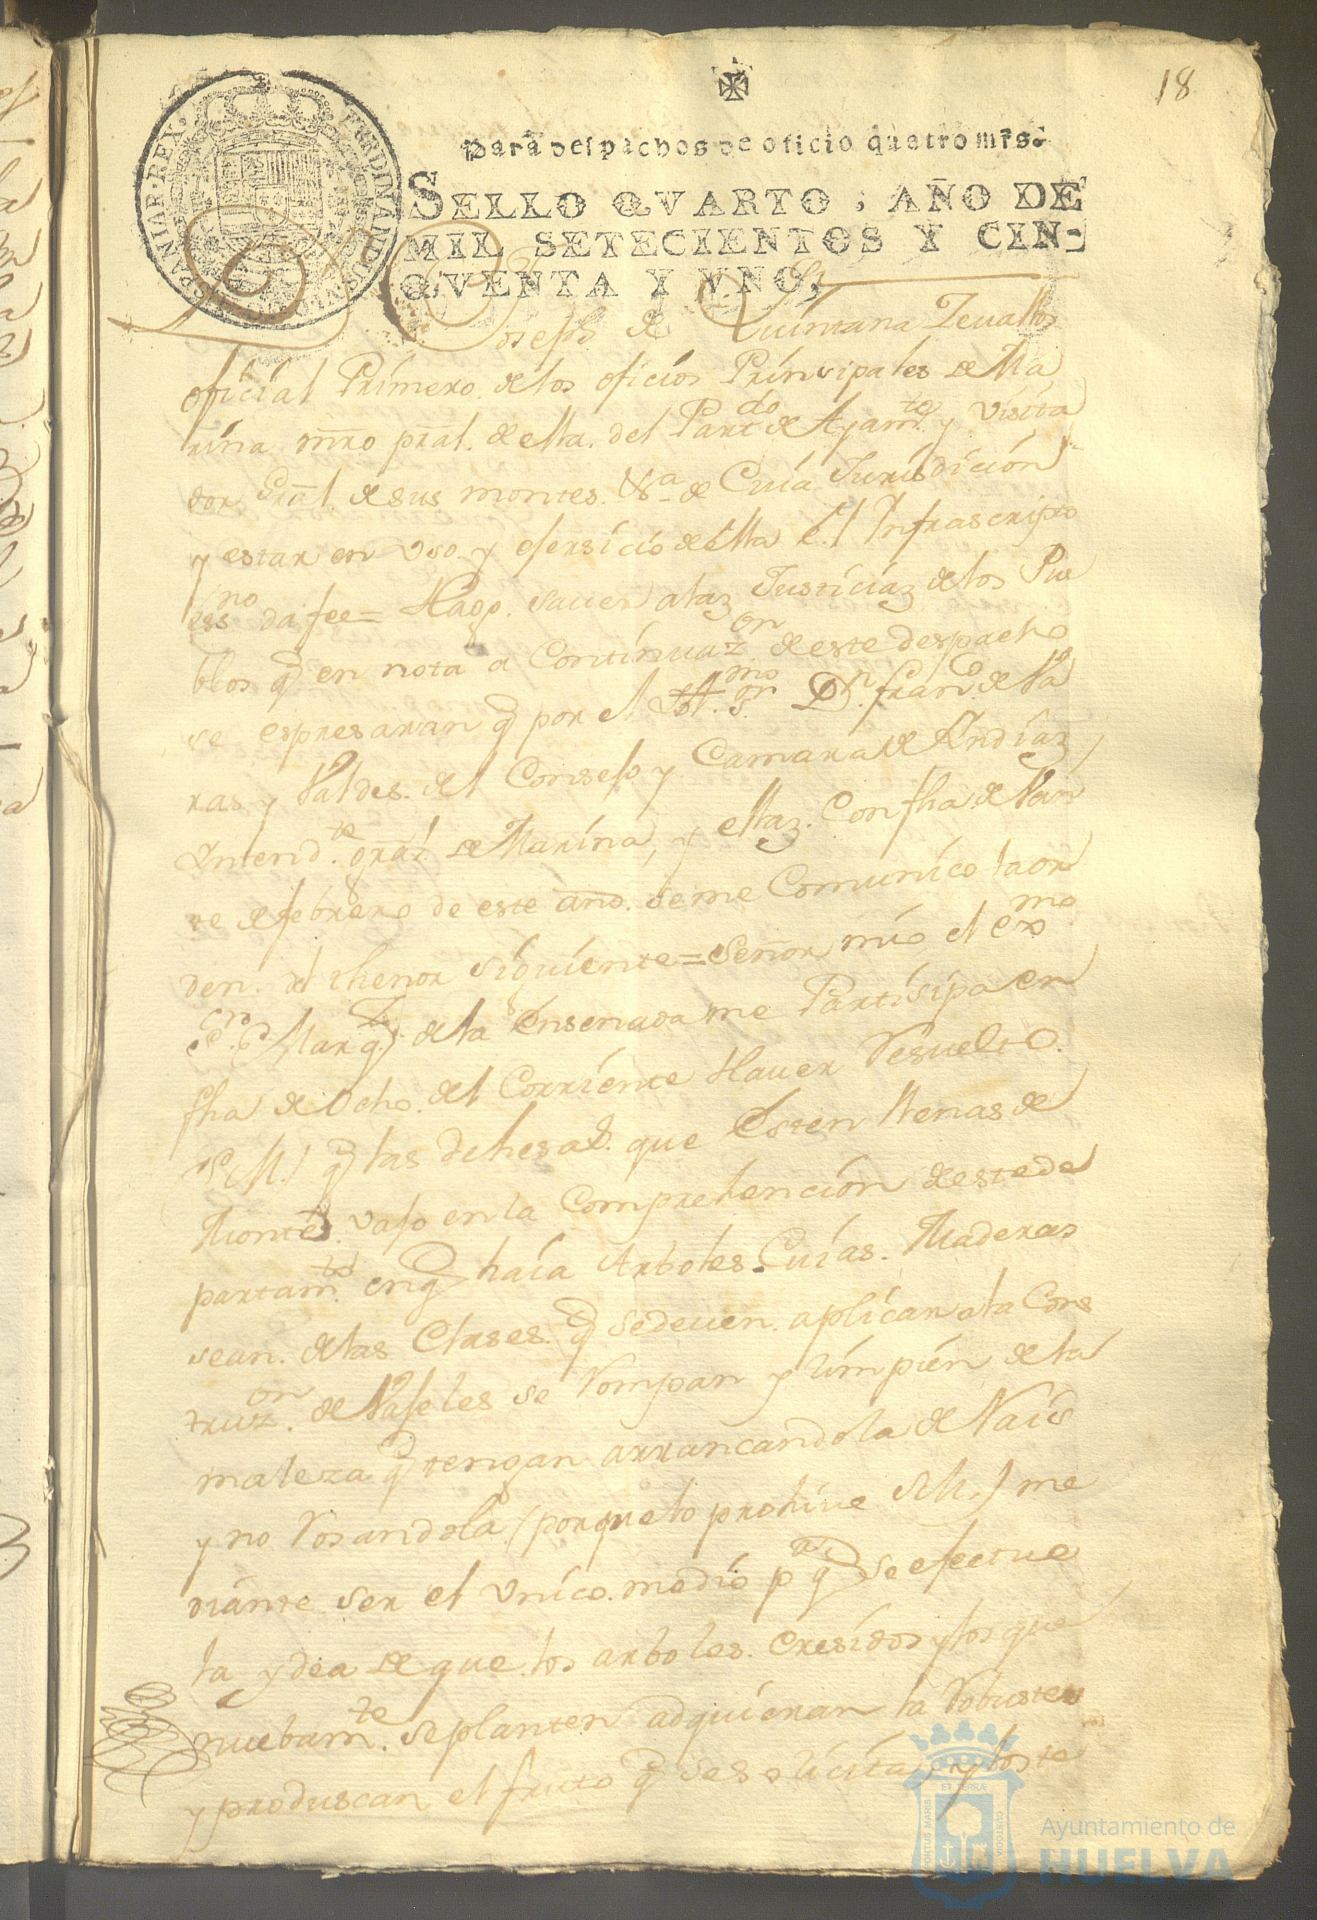 18
Para despachos de oficio quatro mrs.
SELLO QVARTO, AÑO DE
MIL SETECIENTOS Y CIN-
QVENTA Y VNO,
FERDINANDUS VI D G HISPANIAR REX
Dn Joseph de Quintana Zeuallos
oficial Primero de los oficios Prinsipales de Ma
rina mro pral. de ella del Partdo de Ayamte y Visita
dor Gral. de sus montes de Cuia Jurisdición
y estar en Uso y esersicio de ella el Infrascripto
essno da fee= Hago sauer a las Justicias de los Pue
blos q en nota a Continuazon de este despacho
se espresaran q por el Illmo sor Dn Franco de Va
ras y Valdes del Consejo y Camara de Indias
Intendte gral de Marina, y ellas Con fha de Vein
te de febrero de este año se me Comunico la or
den del thenor siguiente= Señor mio el exmo
sor Marqs de la Ensenada me Partisipa en
fha de Ocho del Corriente Hauer Resuelto
S.M. q las dehesas que Esten llenas de
Monte vajo en la Comprehención de este de
partamto en q haia Arboles Cuias Maderas
sean de las Clases q se deuen aplicar a la Cons
truzon de Vajeles se Rompan y limpien de la
maleza q tengan arrancandola de Raiz
y no Rosandola (porque lo prohive S.M.) me
diante ser el Unico medio pa q se efectue
la ydea de que los arboles Cresidos y los que
nuebamte se planten adquieran la Robustez
y produscan el fruto q se solicita, y los te
PORTUS MARIS ET TERRAE CUSTODIA
Ayuntamiento de
HUELVA